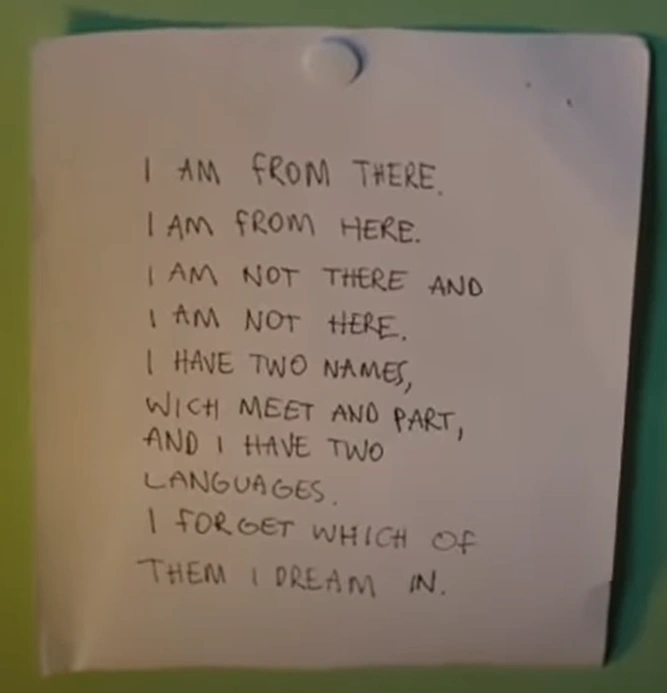 I AM FROM THERE.
I AM FROM HERE.
I AM NOT THERE AND
I AM NOT HERE.
I HAVE TWO NAMES,
WICH MEET AND PART,
AND I HAVE TWO
LANGUAGES.
I FORGET WHICH OF
THEM I DREAM IN.